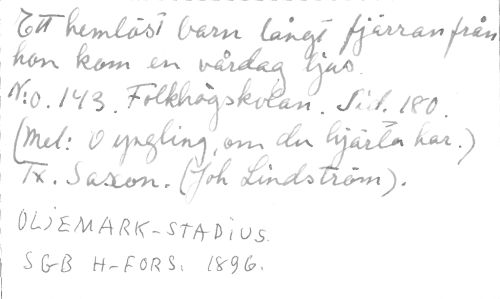 Ett hemlöst barn långt fjärran från
hon kom en vårdag ljus.
N:o. 143. Folkhögskolan. Sid. 180.
(Mel: O yngling, om du hjärta har.)
Tx. Saxon. (Joh Lindström).
OLJEMARK-STADIUS.
SGB H-FORS. 1896.